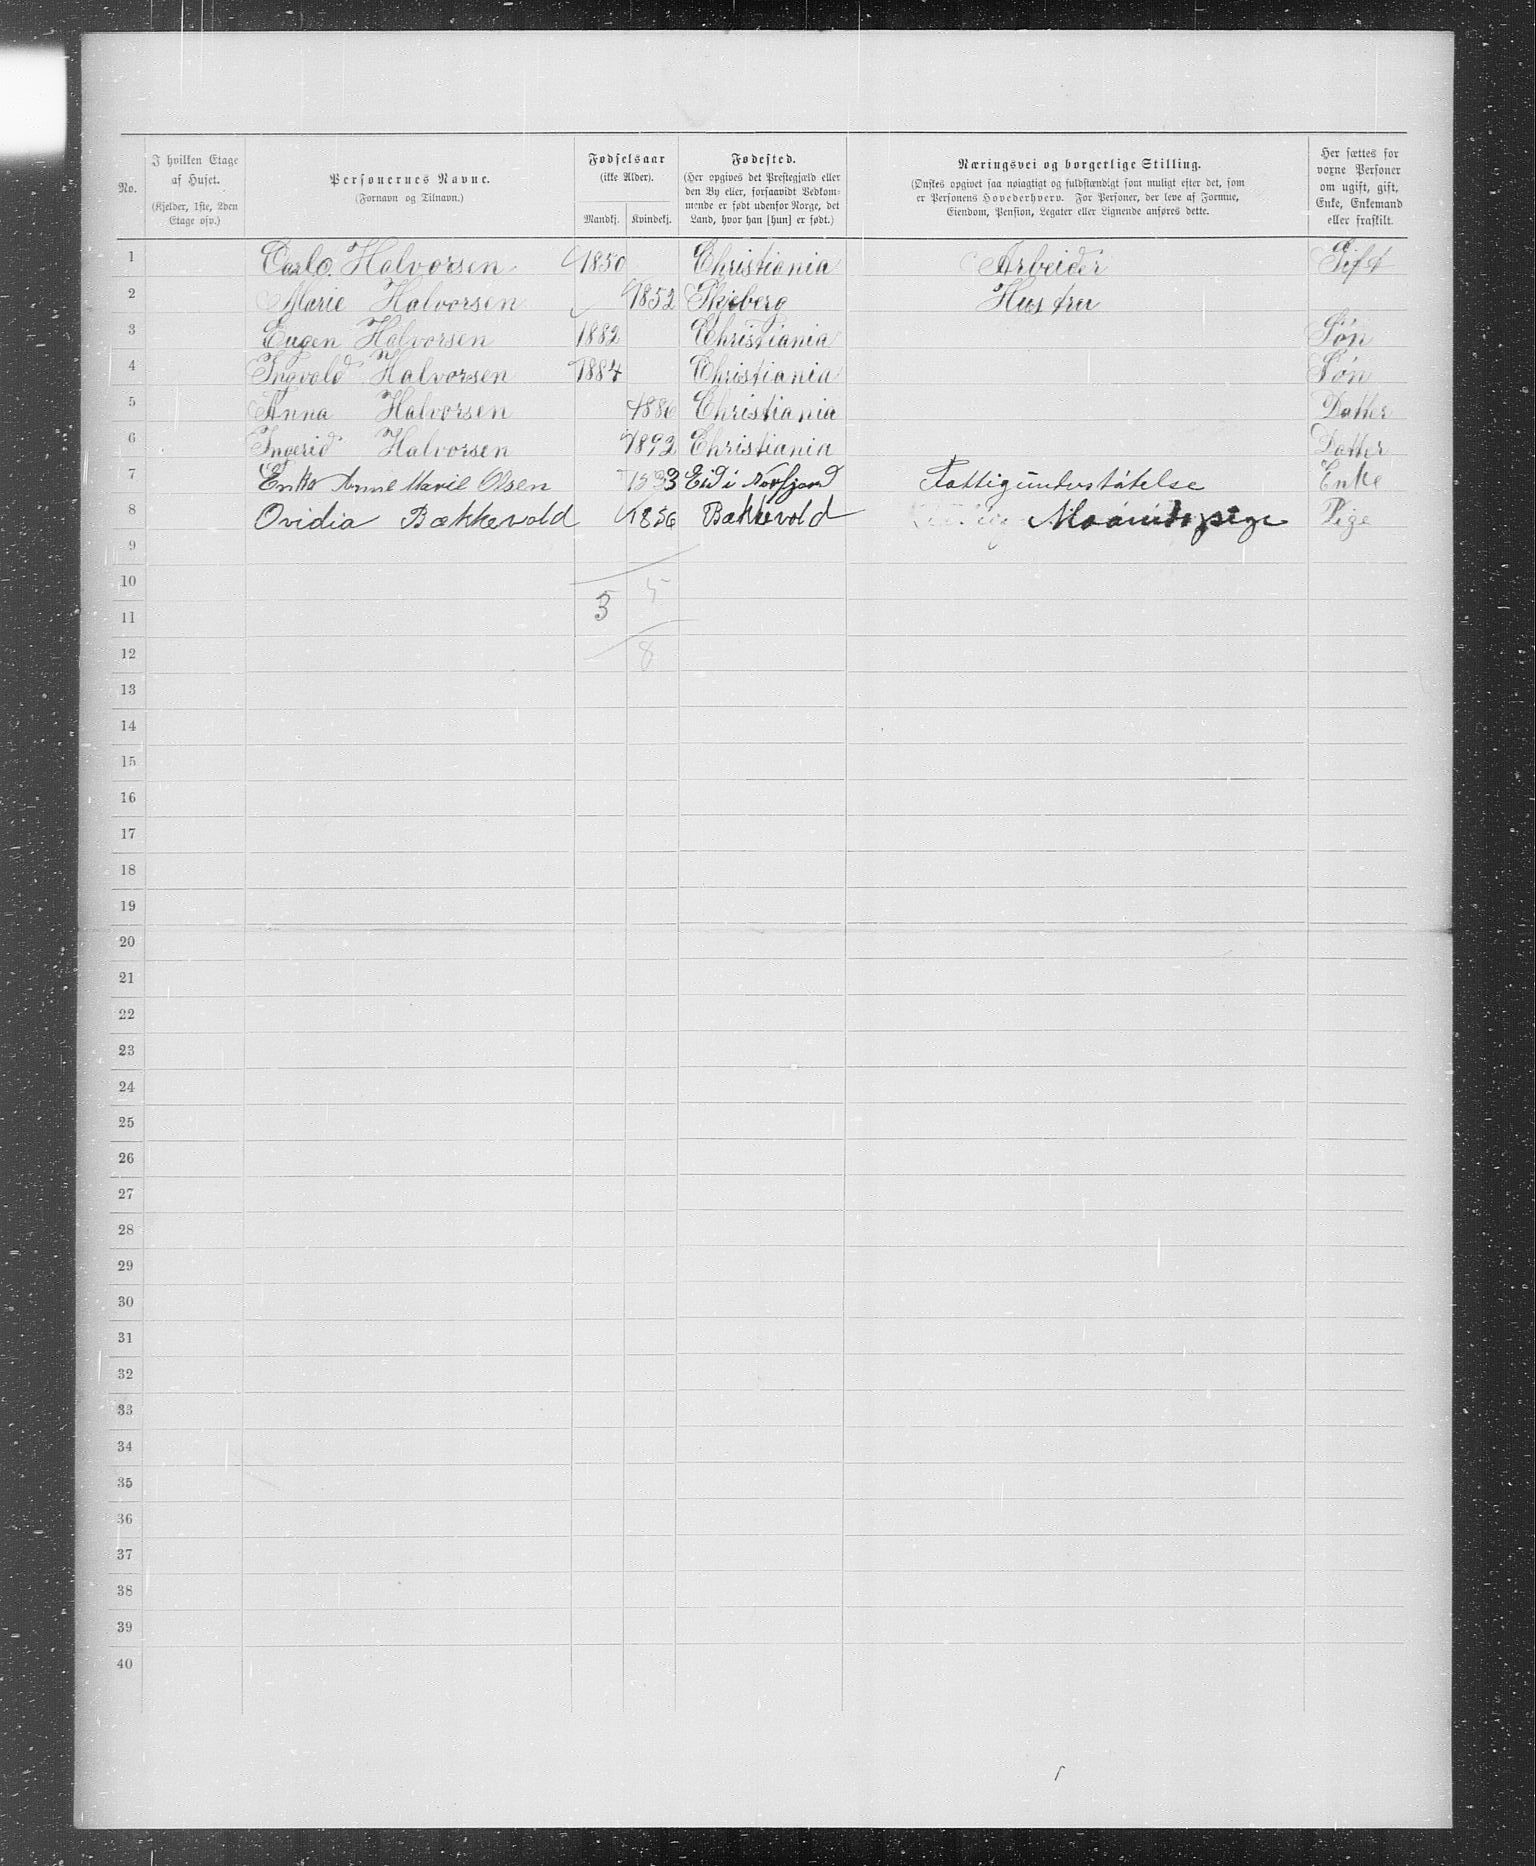 No.
I hvilken Etage af Huset.
(Kjelder, 1ste, 2den Etage osv.)
Personernes Navne.
(Fornavn og Tilnavn.)
Fødselsaar
(ikke Alder).
Mandkj. Kvindekj.
Fødested.
(Her opgives det Prestegjæld eller
den By eller, forsaavidt Vedkom-
mende er født udenfor Norge, det
Land, hvor han [hun] er født.)
Næringsvei og borgerlige Stilling.
(Ønskes opgivet saa nøiagtigt og fuldstændigt som muligt efter det, som
er Personens Hovederhverv. For Personer, der leve af Formue,
Eiendom, Pension, Legater eller Lignende anføres dette.
Her sættes for
voxne Personer
om ugift, gift,
Enke, Enkemand
eller fraskilt.
1 Carlo. Halvorsen 1850 Christiania Arbeider Gift
2 Marie Halvorsen 1852 Skjeberg Hustru
3 Eugen Halvorsen 1882 Christiania Søn
4 Ingvald Halvorsen 1884 Christiania Søn
5 Anna Halvorsen 1886 Christiania Datter
6 Ingerid Halvorsen 1892 Christiania Datter
7 Enke Anne Marie Olsen Eid i Norfjord Fattigunderstøtelse Enke
8 Ovidia Bækkevold 1856 Bækkevold Pige
9
10 5
11 3
12 8
13
14
15
16
17
18
19
20
21
22
23
24
25
26
27
28
29
30
31
32
33
34
35
36
37
38
39
40